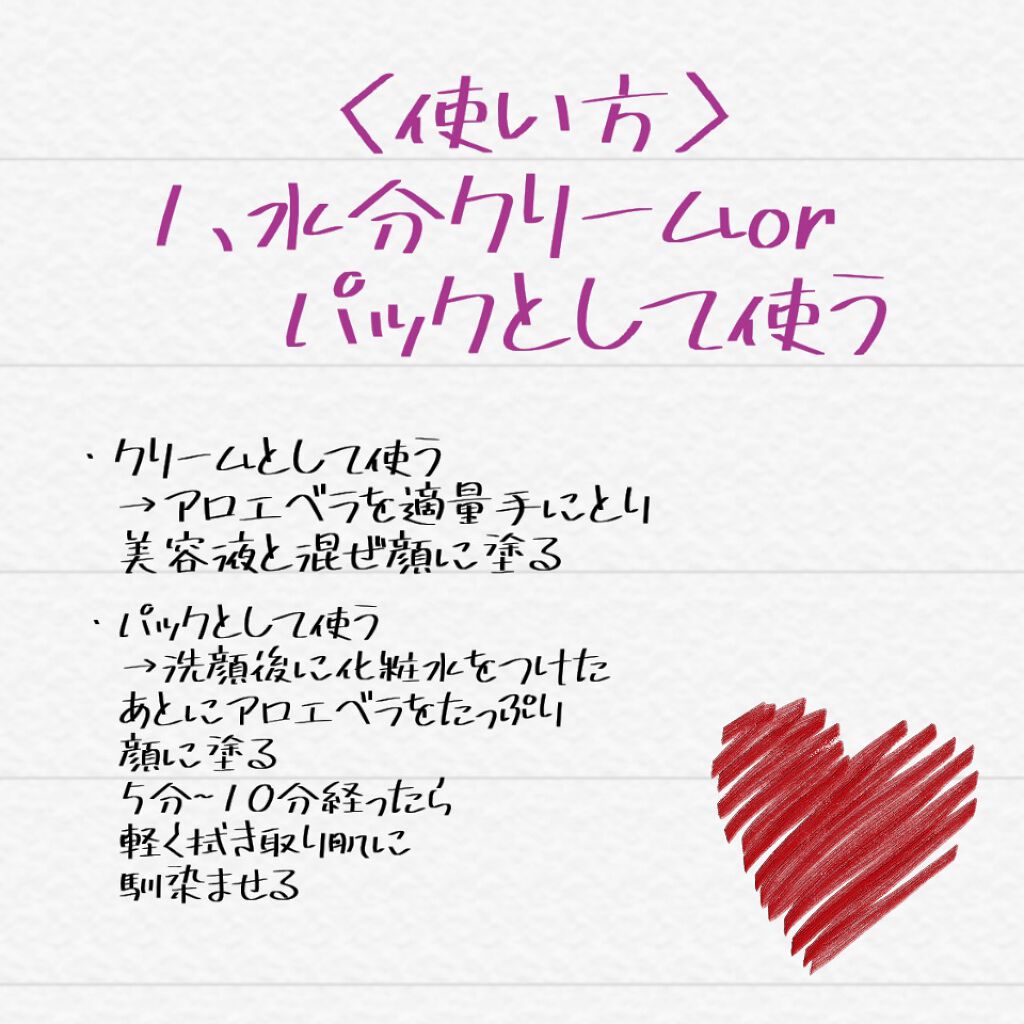 〈使い方〉
1、水分クリームor
パックとして使う
・クリームとして使う
→アロエベラを適量手にとり
美容液と混ぜ顔に塗る
・パックとして使う
→洗顔後に化粧水をつけた
あとにアロエベラをたっぷり
顔に塗る
5分~10分経ったら
軽く拭き取り肌に
馴染ませる